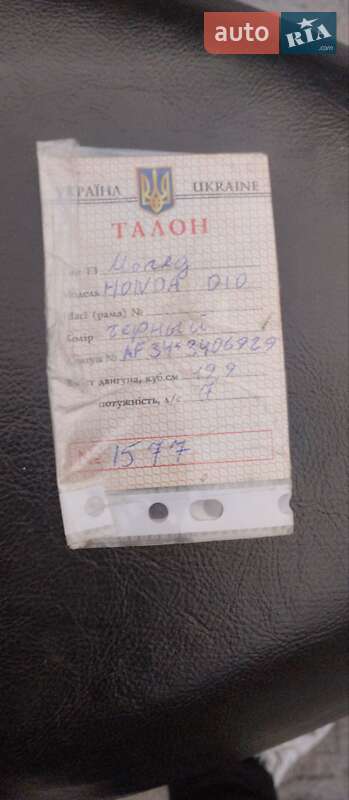 auto RIA .com
УКРАЇНА UKRAINE
ТАЛОН
Тип ТЗ Мопед
Модель HONDA DIO
Шасі (рама) №
Колір черный
Корпуса № AF 34 3406929
двигуна, куб.см 499
потужність, л/с 7
№ 1577